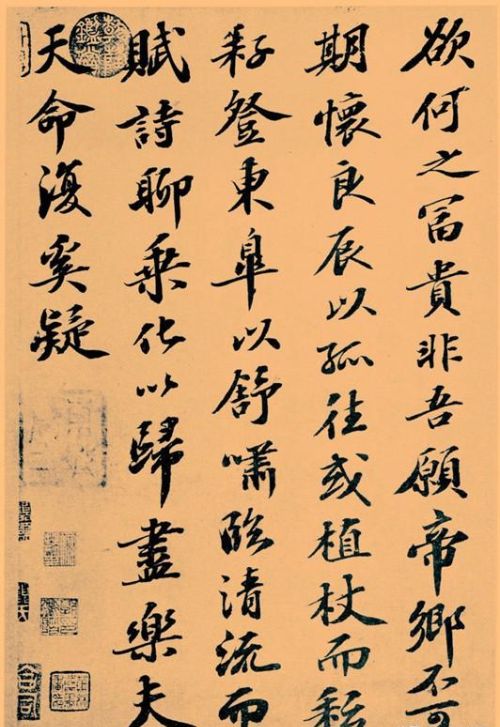 欲何之冨貴非吾願帝鄉不可
期懷良辰以孤往或植杖而耘
耔登東皐以舒嘯臨清流而
賦詩聊乗化以歸盡樂夫
天命復奚疑